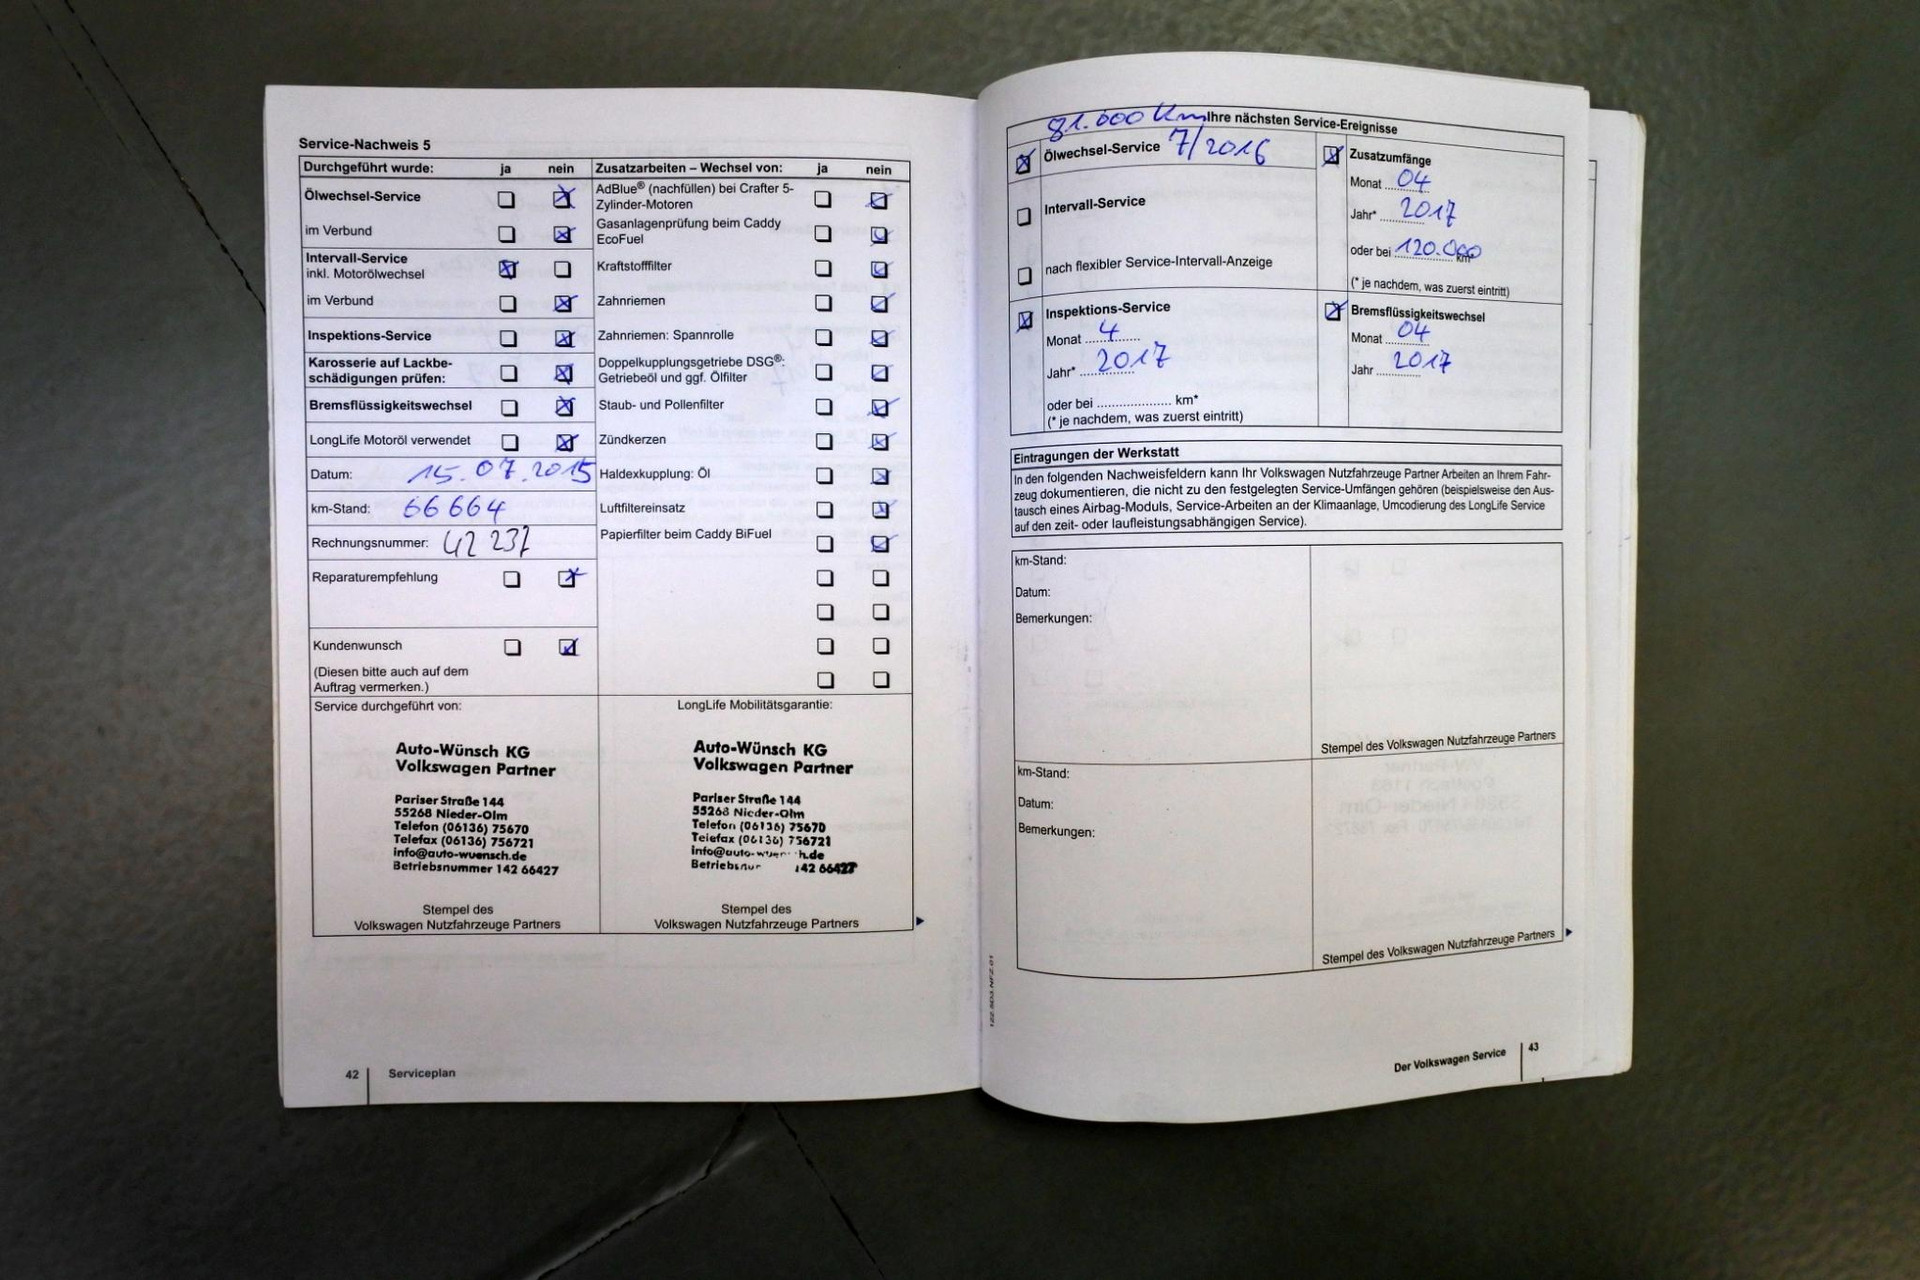 Service-Nachweis 5
Durchgeführt wurde: ja nein
Ölwechsel-Service
im Verbund
Intervall-Service
inkl. Motorölwechsel
im Verbund
Inspektions-Service
Karosserie auf Lackbe-
schädigungen prüfen:
Bremsflüssigkeitswechsel
LongLife Motoröl verwendet
Datum: 15.07.2015
km-Stand: 66664
Rechnungsnummer: 42 237
Reparaturempfehlung
Kundenwunsch
(Diesen bitte auch auf dem
Auftrag vermerken.)
Zusatzarbeiten – Wechsel von: ja nein
AdBlue® (nachfüllen) bei Crafter 5-
Zylinder-Motoren
Gasanlagenprüfung beim Caddy
EcoFuel
Kraftstofffilter
Zahnriemen
Zahnriemen: Spannrolle
Doppelkupplungsgetriebe DSG®:
Getriebeöl und ggf. Ölfilter
Staub- und Pollenfilter
Zündkerzen
Haldexkupplung: Öl
Luftfiltereinsatz
Papierfilter beim Caddy BiFuel
Service durchgeführt von:
Auto-Wünsch KG
Volkswagen Partner
Pariser Straße 144
55268 Nieder-Olm
Telefon (06136) 75670
Telefax (06136) 756721
info@auto-wuensch.de
Betriebsnummer 142 66427
Stempel des
Volkswagen Nutzfahrzeuge Partners
LongLife Mobilitätsgarantie:
Auto-Wünsch KG
Volkswagen Partner
Pariser Straße 144
55268 Nieder-Olm
Telefon (06136) 75670
Telefax (06136) 756721
142 66427
Stempel des
Volkswagen Nutzfahrzeuge Partners
42 Serviceplan
81.000 Km Ihre nächsten Service-Ereignisse
Ölwechsel-Service 7/2016
Intervall-Service
nach flexibler Service-Intervall-Anzeige
Inspektions-Service
Monat 4
Jahr* 2017
oder bei .................... km*
(* je nachdem, was zuerst eintritt)
Zusatzumfänge
Monat 04
Jahr* 2017
oder bei 120.000 km*
(* je nachdem, was zuerst eintritt)
Bremsflüssigkeitswechsel
Monat 04
Jahr 2017
Eintragungen der Werkstatt
In den folgenden Nachweisfeldern kann Ihr Volkswagen Nutzfahrzeuge Partner Arbeiten an Ihrem Fahr-
zeug dokumentieren, die nicht zu den festgelegten Service-Umfängen gehören (beispielsweise den Aus-
tausch eines Airbag-Moduls, Service-Arbeiten an der Klimaanlage, Umcodierung des LongLife Service
auf den zeit- oder laufleistungsabhängigen Service).
km-Stand:
Datum:
Bemerkungen:
Stempel des Volkswagen Nutzfahrzeuge Partners
km-Stand:
Datum:
Bemerkungen:
Stempel des Volkswagen Nutzfahrzeuge Partners
122.5D3.NFZ.01
Der Volkswagen Service 43